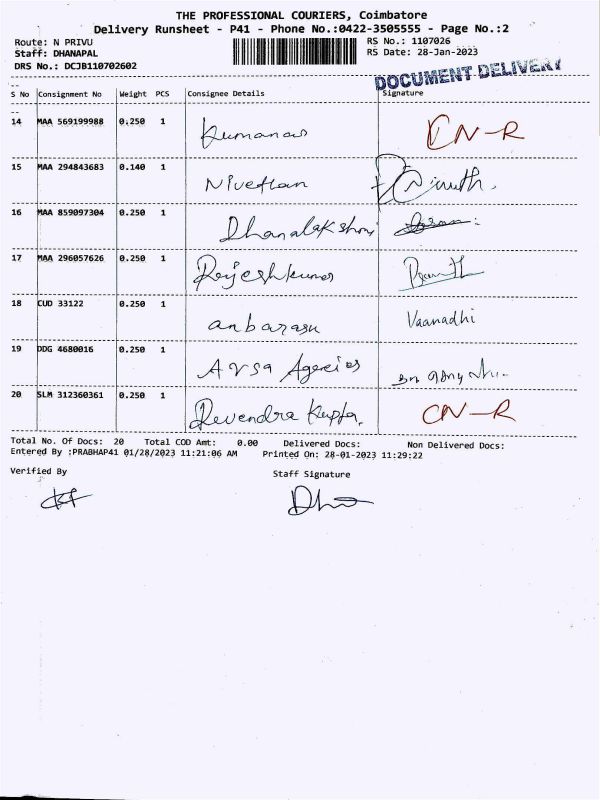 THE PROFESSIONAL COURIERS, Coimbatore
Delivery Runsheet - P41 - Phone No.:0422-3505555 - Page No.:2
Route: N PRIVU RS No.: 1107026
Staff: DHANAPAL RS Date: 28-Jan-2023
DRS No.: DCJB110702602
DOCUMENT DELIVERY
S No Consignment No Weight PCS Consignee Details Signature
14 MAA 569199988 0.250 1 Kumanan CN-R
15 MAA 294843683 0.140 1 Nivethan
16 MAA 859097304 0.250 1 Dhanalakshmi
17 MAA 296057626 0.250 1 Rajeshkumar
18 CUD 33122 0.250 1 anbarasu Vaanadhi
19 DDG 4680016 0.250 1 Arsa Agencies
20 SLM 312360361 0.250 1 Devendra Kupta. CN-R
Total No. Of Docs: 20 Total COD Amt: 0.00 Delivered Docs: Non Delivered Docs:
Entered By :PRABHAP41 01/28/2023 11:21:06 AM Printed On: 28-01-2023 11:29:22
Verified By Staff Signature